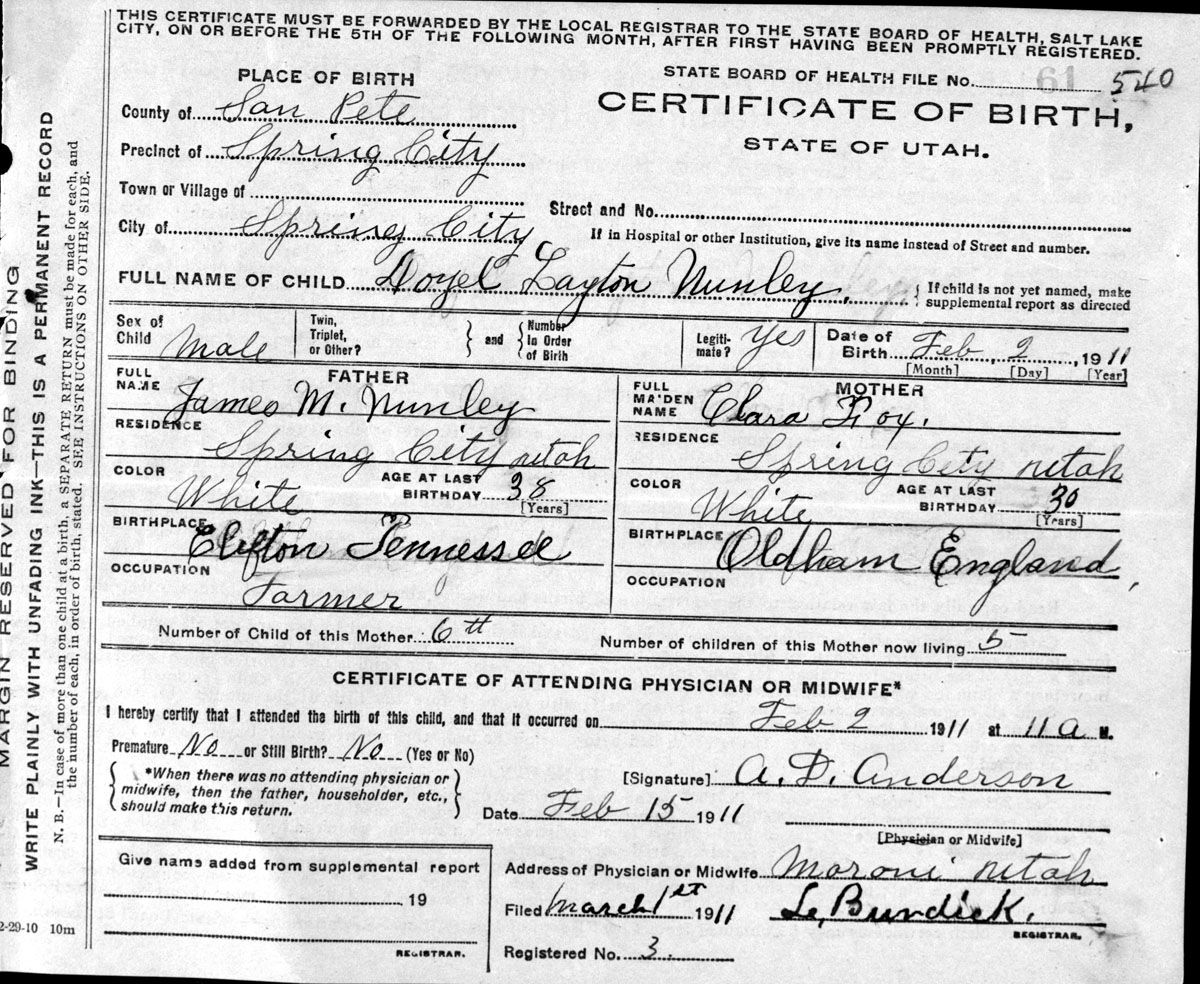 THIS CERTIFICATE MUST BE FORWARDED BY THE LOCAL REGISTRAR TO THE STATE BOARD OF HEALTH, SALT LAKE
CITY, ON OR BEFORE THE 5TH OF THE FOLLOWING MONTH, AFTER FIRST HAVING BEEN PROMPTLY REGISTERED.
PLACE OF BIRTH
STATE BOARD OF HEALTH FILE No. 61 540
County of San Pete
CERTIFICATE OF BIRTH,
Precinct of Spring City
STATE OF UTAH.
Town or Village of
Street and No.
City of Spring City
If in Hospital or other Institution, give its name instead of Street and number.
FULL NAME OF CHILD Doyel Layton Nunley. { If child is not yet named, make
supplemental report as directed
Sex of Child Male
Twin, Triplet, or Other? } and { Number In Order of Birth
Legiti- mate? Yes
Date of Birth Feb 2, 1911
[Month] [Day] [Year]
FATHER
FULL NAME James M. Nunley
RESIDENCE Spring City utah
COLOR White
AGE AT LAST BIRTHDAY 38
[Years]
BIRTHPLACE Clifton Tennessee
OCCUPATION Farmer
MOTHER
FULL MAIDEN NAME Clara Foy.
RESIDENCE Spring City utah
COLOR White
AGE AT LAST BIRTHDAY 30
[Years]
BIRTHPLACE Oldham England,
OCCUPATION
Number of Child of this Mother 6th
Number of children of this Mother now living 5
CERTIFICATE OF ATTENDING PHYSICIAN OR MIDWIFE*
I hereby certify that I attended the birth of this child, and that it occurred on Feb 2 1911 at 11 a M.
Premature No or Still Birth? No (Yes or No)
{ *When there was no attending physician or
midwife, then the father, householder, etc.,
should make this return. }
[Signature] A. D. Anderson
Date Feb 15 1911
[Physician or Midwife]
Give name added from supplemental report
19
REGISTRAR.
Address of Physician or Midwife Moroni utah
Filed March 1st 1911 Burdick.
REGISTRAR.
Registered No. 3.
MARGIN RESERVED FOR BINDING
WRITE PLAINLY WITH UNFADING INK—THIS IS A PERMANENT RECORD
N. B.—In case of more than one child at a birth, a SEPARATE RETURN must be made for each, and
the number of each, in order of birth, stated. SEE INSTRUCTIONS ON OTHER SIDE.
2-29-10 10m